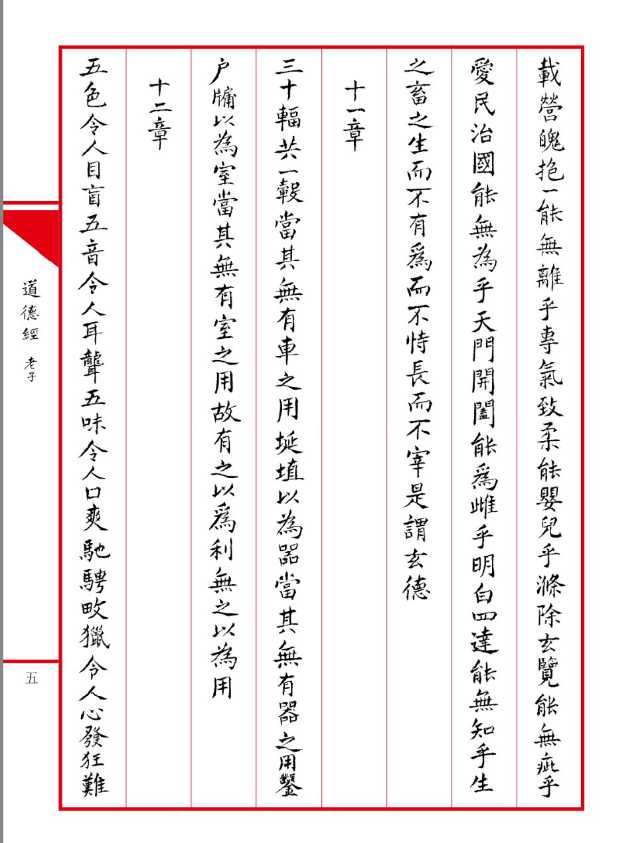 載營魄抱一能無離乎專氣致柔能嬰兒乎滌除玄覽能無疵乎
愛民治國能無為乎天門開闔能為雌乎明白四達能無知乎生
之畜之生而不有爲而不恃長而不宰是謂玄德
十一章
三十輻共一轂當其無有車之用埏埴以為器當其無有器之用鑿
户牖以為室當其無有室之用故有之以爲利無之以為用
十二章
五色令人目盲五音令人耳聾五味令人口爽馳騁畋獵令人心發狂難
道德經 老子
五